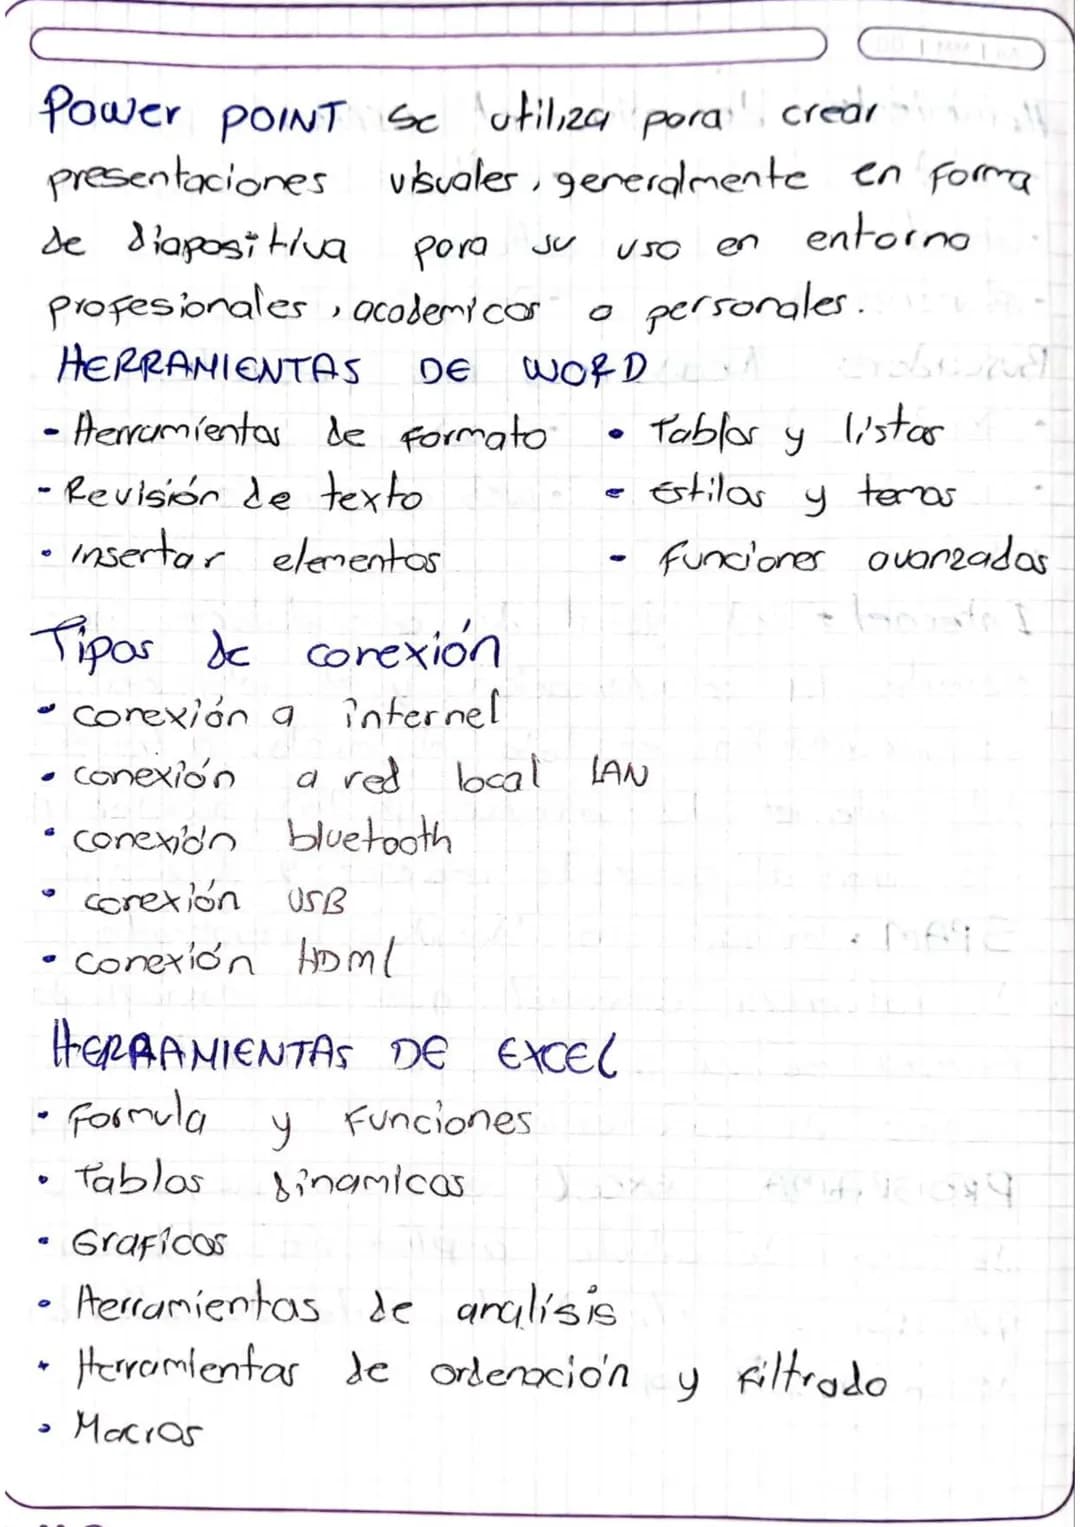 Power POINT se utiliza para crear
presentaciones visuales, generalmente en forma
de diapositiva para su uso en entorno
profesionales, academicos o personales.
HERRAMIENTAS DE WORD
- Herramientas de formato
- Revisión de texto
• insertar elementos
• Tablas y listas
- Estilos y temas
- funciones avanzadas
Tipos de conexión
• conexión a internet
• conexión a red local LAN
• conexión bluetooth
• conexión USB
• conexión HDMI
HERRAMIENTAS DE EXCEL
• Formula y Funciones
• Tablas dinamicas
• Graficos
• Herramientas de analísis
• Herramientas de ordenación y Filtrado
• Macros